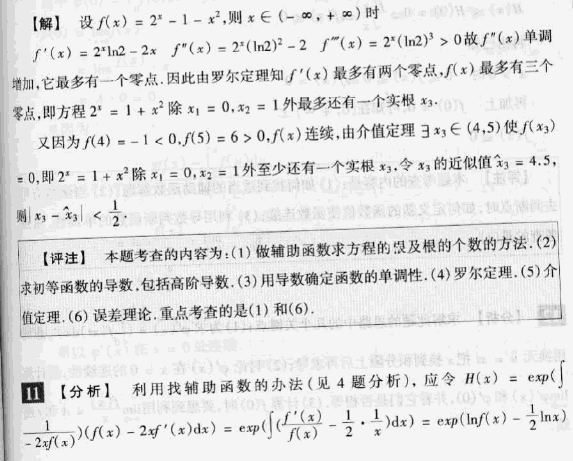 【解】 设 f(x) = 2ˣ - 1 - x²,则 x ∈ (-∞, +∞) 时
f′(x) = 2ˣln2 - 2x f″(x) = 2ˣ(ln2)² - 2 f‴(x) = 2ˣ(ln2)³ > 0故f″(x)单调
增加,它最多有一个零点.因此由罗尔定理知f′(x)最多有两个零点,f(x)最多有三个
零点,即方程 2ˣ = 1 + x² 除 x₁ = 0, x₂ = 1外最多还有一个实根 x₃.
又因为f(4) = -1 < 0,f(5) = 6 > 0,f(x)连续,由介值定理 ∃ x₃ ∈ (4,5)使f(x₃)
= 0,即2ˣ = 1 + x² 除 x₁ = 0,x₂ = 1外至少还有一个实根 x₃,令 x₃ 的近似值x̂₃ = 4.5,
则 | x₃ - x̂₃ | < 1/2.
【评注】 本题考查的内容为:(1) 做辅助函数求方程的根及根的个数的方法.(2)
求初等函数的导数,包括高阶导数.(3) 用导数确定函数的单调性.(4) 罗尔定理.(5) 介
值定理.(6) 误差理论.重点考查的是(1) 和(6).
11 【分析】 利用找辅助函数的办法(见 4 题分析), 应令 H(x) = exp(∫
1/(-2xf(x)))(f(x) - 2xf′(x)dx) = exp(∫(f′(x)/f(x) - 1/2 · 1/x)dx) = exp(lnf(x) - 1/2 lnx)